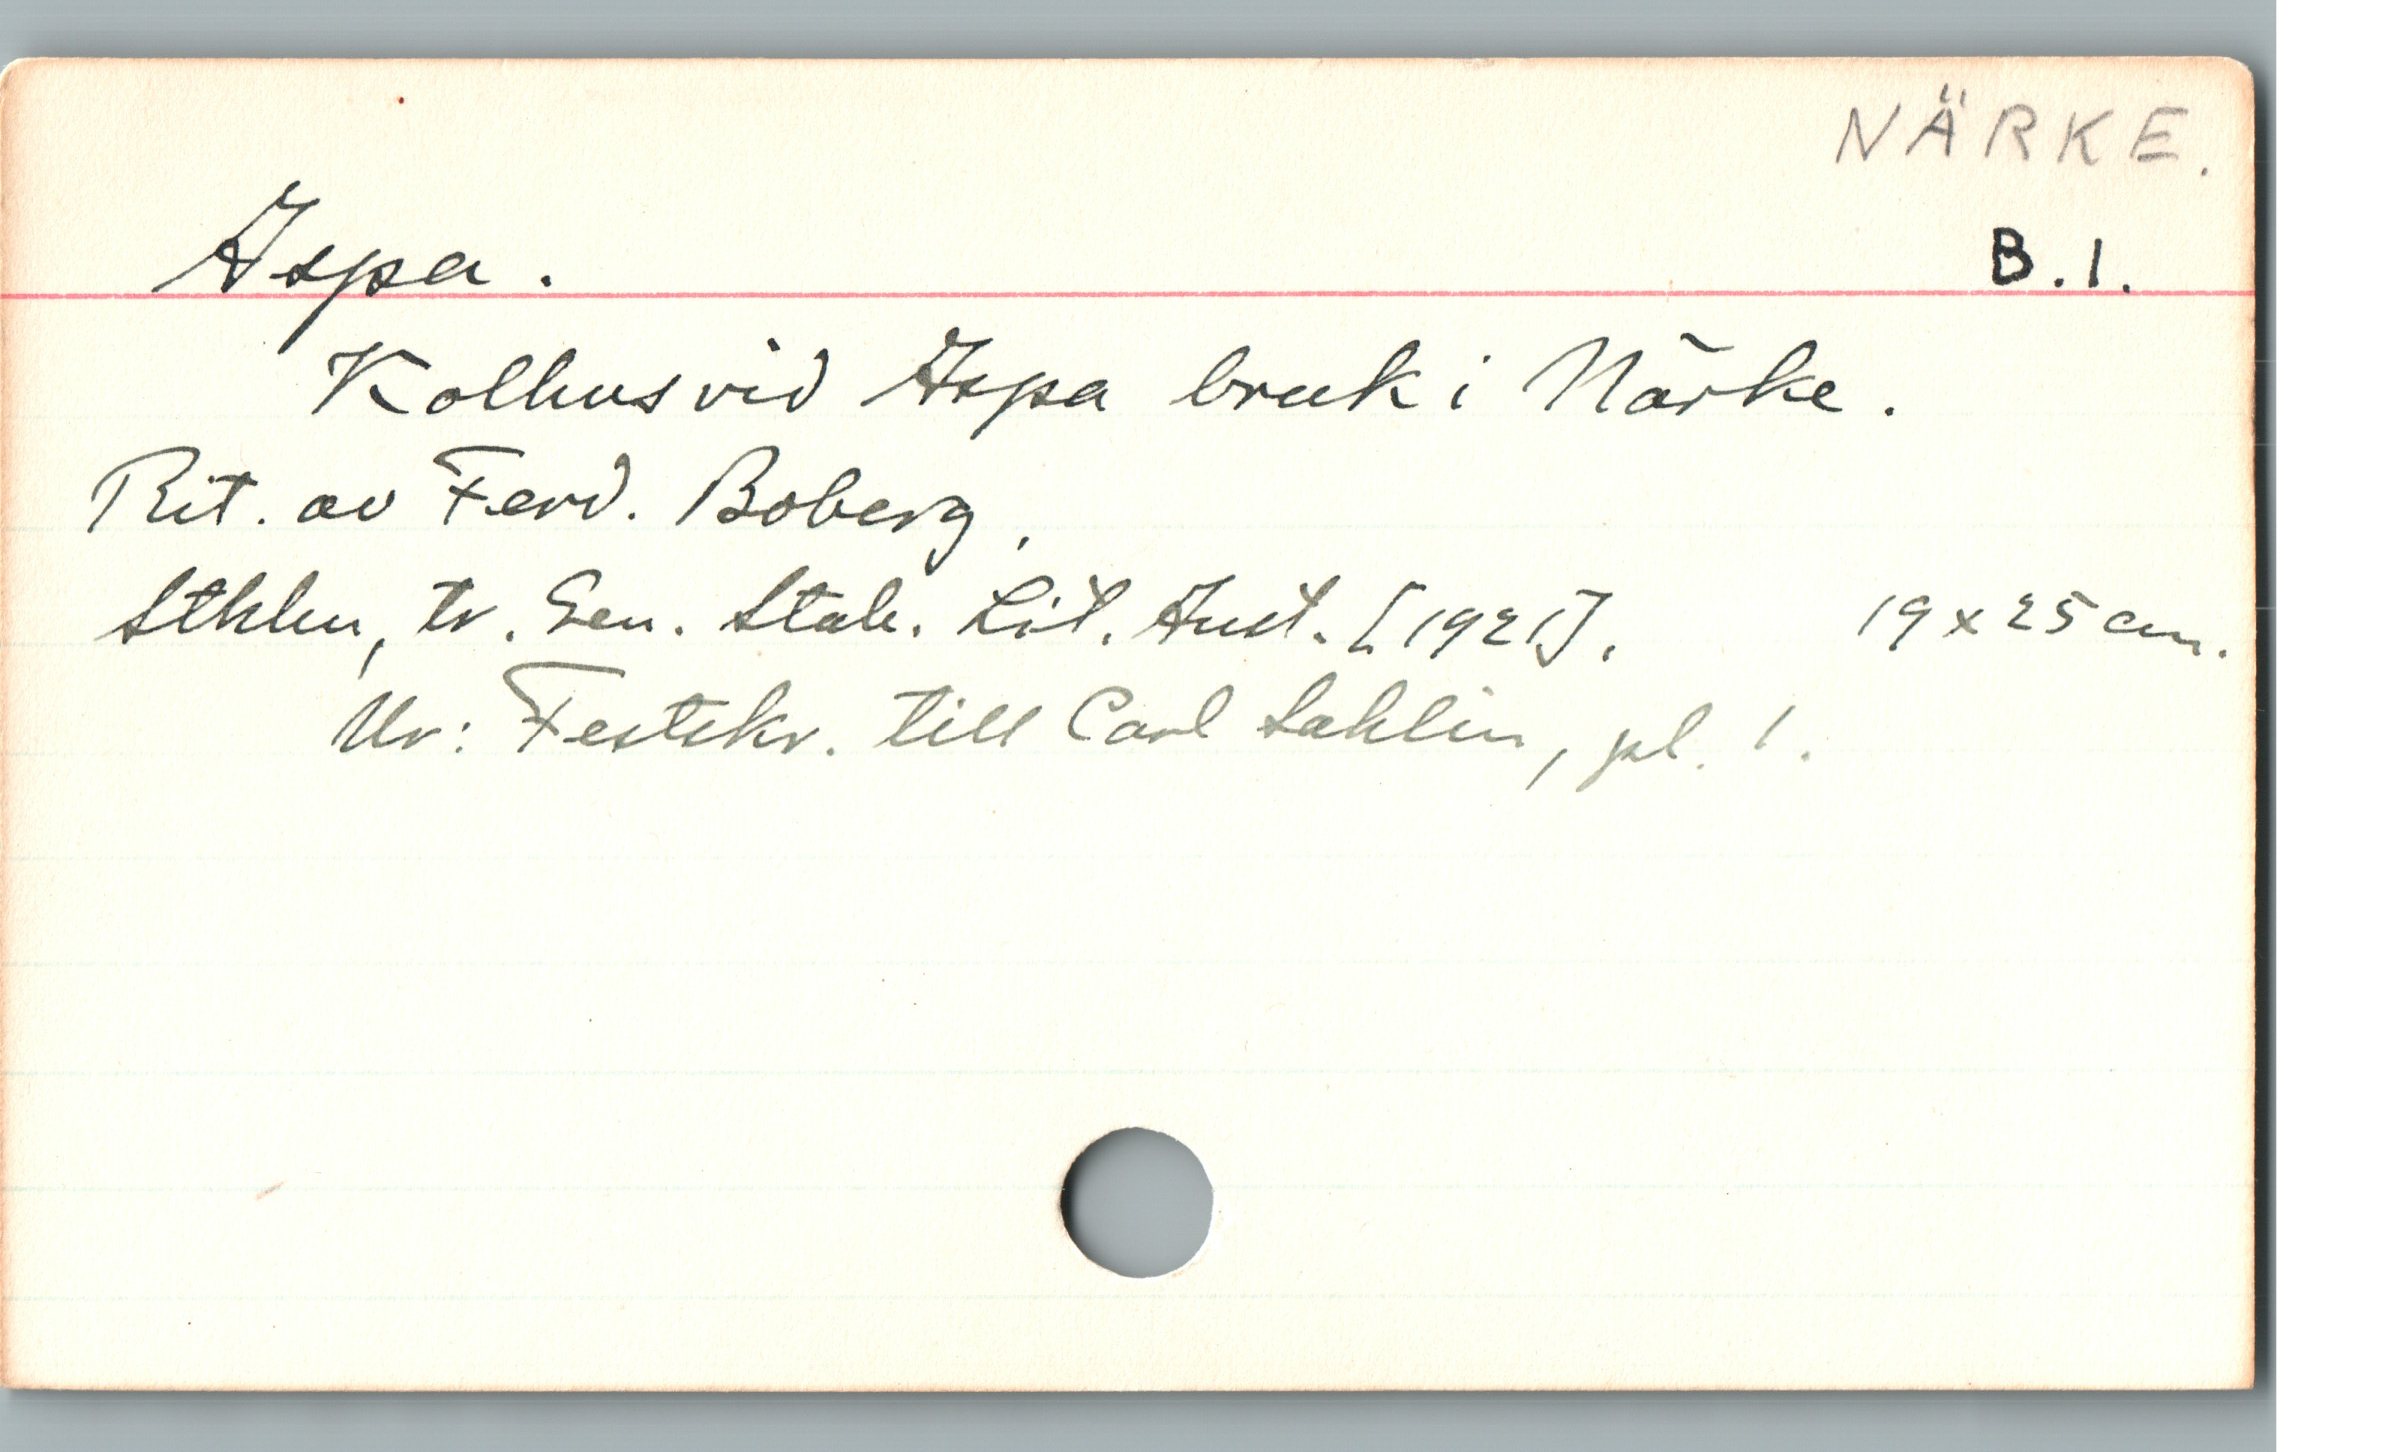 NÄRKE.
Aspa. B.1.
Kolhus vid Aspa bruk i Närke.
Rit. av Ferd. Boberg.
Sthlm, tr. Gen. Stab. Lit. Anst. [1921]. 19 x 25 cm.
Ur: Festskr. till Carl Sahlin, pl. 1.